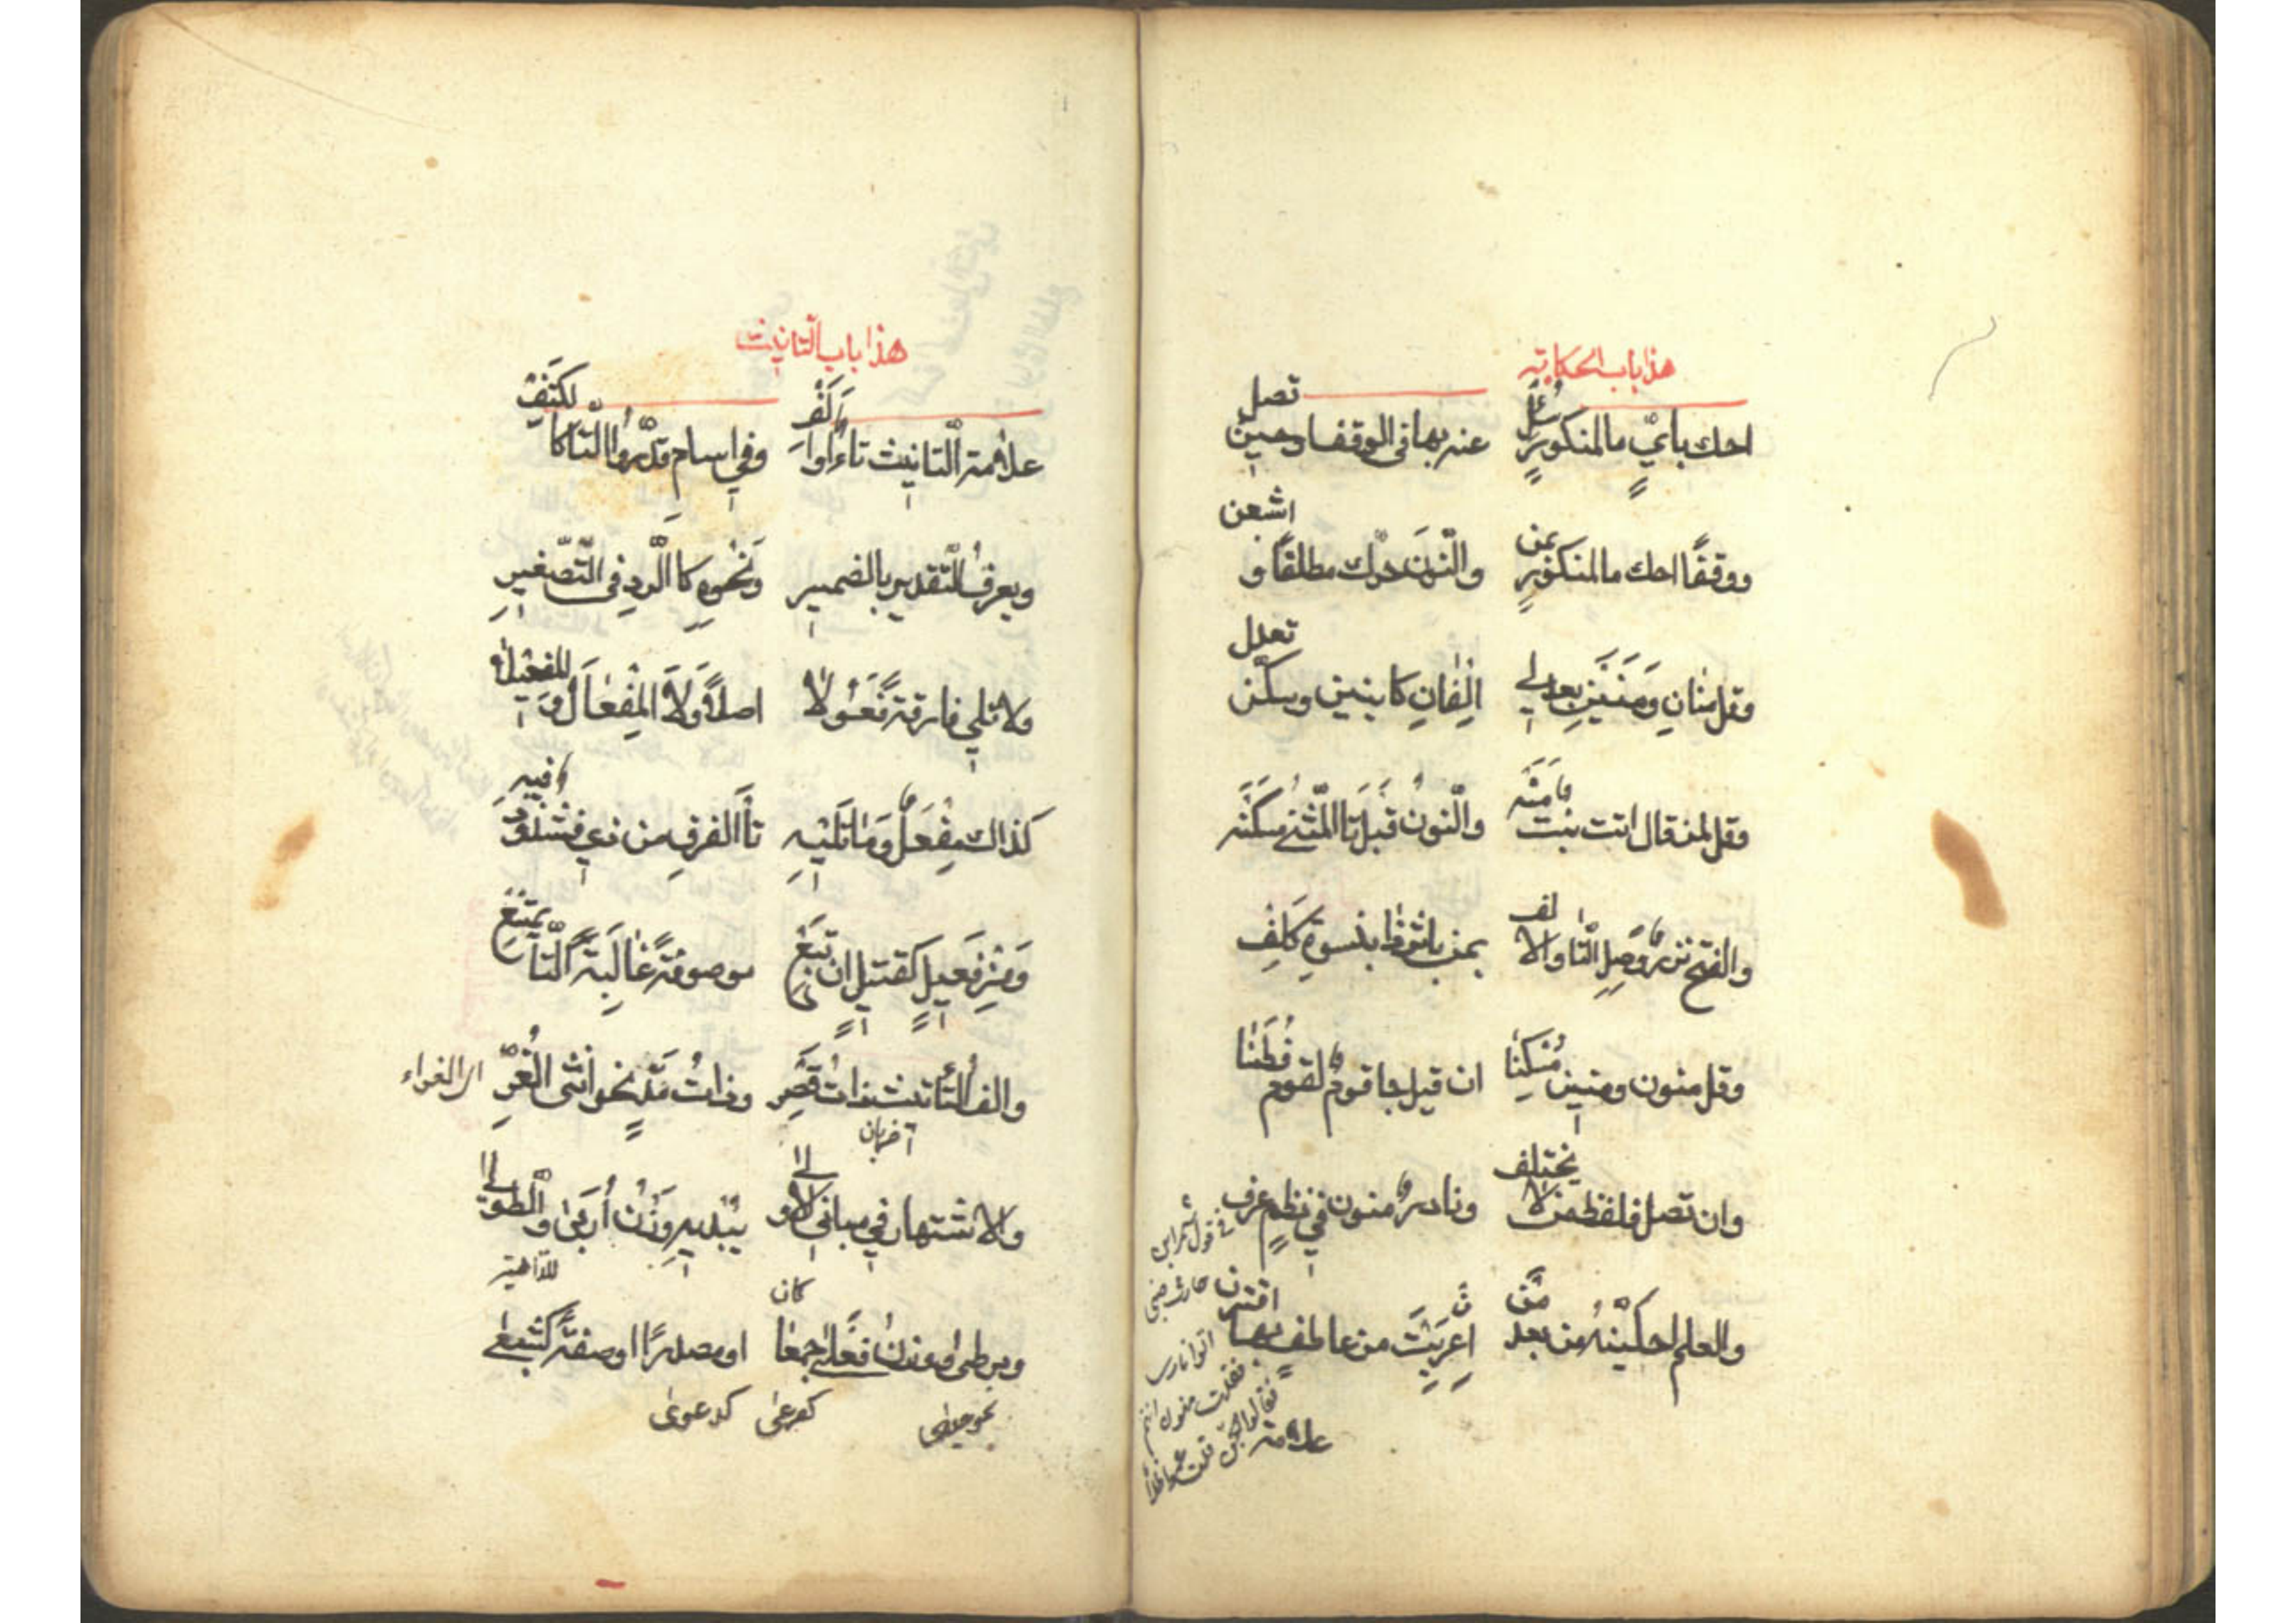 هذا باب الحكاية
احك بأيٍّ ما لمنكورٍ سُئل عنه بها في الوقف او حين تصل
ووقفًا احك ما لمنكورٍ بمن والنّونَ حرّك مطلقًا و اشبعن
وقل منانِ وَمَنَيْنِ بعد لي الِفانِ كابنين وسكّن تعدل
وقل لمن قال اتت بنت مَنَه والنّونُ قبلَ تا المُثنّى مسكَنَه
والفتح نزرٌ وَصِلِ التّا والالف بمن باثر ذا بنسوةٍ كَلِفْ
وقل منون ومنين مُسكِنَا ان قيل جا قومٌ لقوم فُطَنَا
وان تصل فلفظ من لا يختلف ونادرٌ منون في نظمٍ عرف
في قول شمر ابن
حارث ضبي
والعلم احكينهُ من بعد مَن ان عريَتْ من عاطفٍ بها اقترن
اتوا نارى
فقلت منون انتم
فقالوا الجنّ قلت عموا ظلاما
علامة
هذا باب التانيث
علامة التانيث تاءٌ او اَلَفْ وفي اسامٍ قدّروا التّا كالكتِفْ
ويعرفُ التّقدير بالضمير وَنَحْوِهِ كالرّدِ في التّصغيرِ
ولا تلي فارقةً فَعُولا اصلًا وَلا المِفْعَالَ وَ المفعيلا
كذاك مِفْعَلٌ وَمَا تَلَيْهِ تا الفرقِ من ذي فشذوذٌ فيه
وَمِنْ فَعِيلٍ كقتيلٍ ان تَبِعْ موصوفَهُ غَالِبًا التّا تَمْتَنِعْ
والف التّانيث ذاتُ قَصْرِ وذاتُ مَدٍّ نحو انثى الغُرِّ
اى الغراء
اخربان
والاشتهار في مباني الاولى يُبْديهِ وَزْنُ أُرَبَى والطّولى
للداهية
ومرطى ووزنُ فَعلى جمعا او مصدرًا او صفةً كشبعى
كان
نحو جرحى كصرعى كدعوى